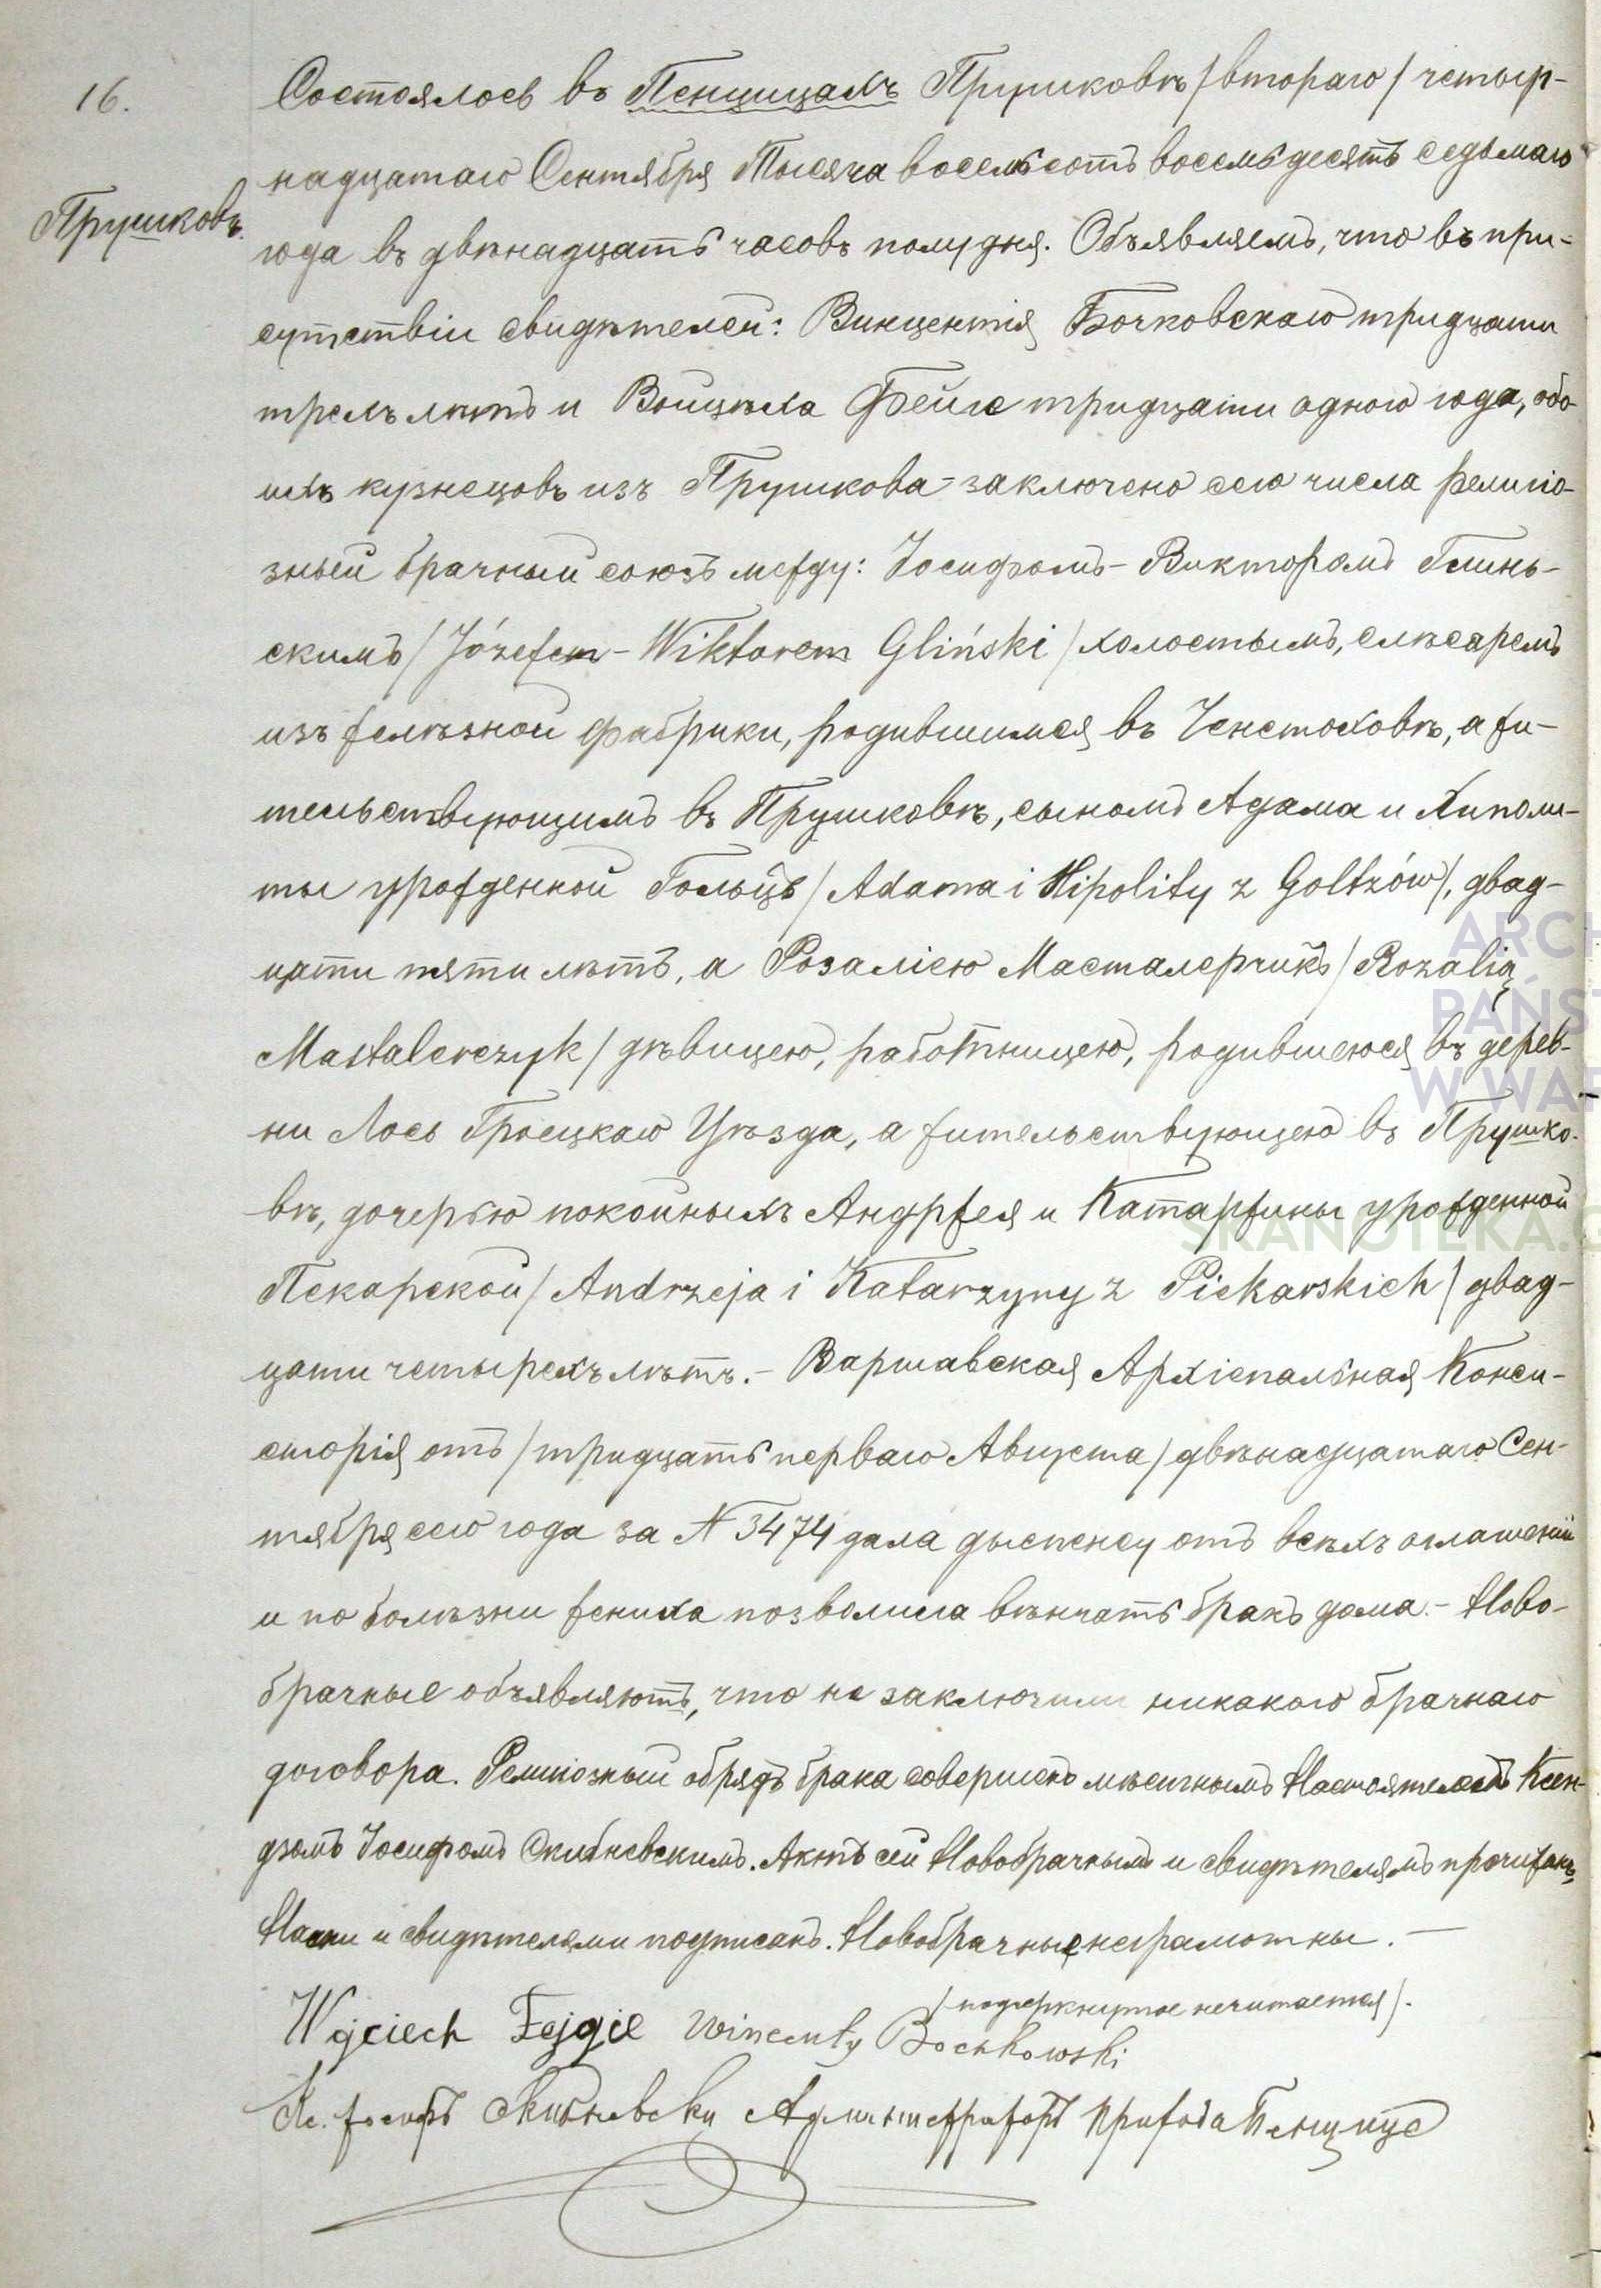 16.
Прушковъ.
Состоялось въ Пенцицахъ Прушковѣ /втораго/ четыр-
надцатаго Сентября Тысяча восемьсотъ восемьдесятъ седьмаго
года въ двѣнадцать часовъ полудня. Объявляемъ, что въ при-
сутствіи свидѣтелей: Винцентія Бочковскаго тридцати
трехъ лѣтъ и Войцѣха Фейге тридцати одного года, обо-
ихъ кузнецовъ изъ Прушкова - заключено сего числа религіо-
зный брачный союзъ между: Іосифомъ - Викторомъ Глинь-
скимъ /Józefem - Wiktorem Gliński/ холостымъ, слѣсаремъ
изъ желѣзной фабрики, родившимся въ Ченстоховѣ, а жи-
тельствующимъ въ Прушковѣ, сыномъ Адама и Хиполи-
ты урожденной Гольцъ /Adama i Hipolity z Goltzów/, двад-
цати пяти лѣтъ, а Розаліею Масталерчикъ /Rozalią
Mastalerczyk/ дѣвицею, работницею, родившеюся въ дерев-
ни Лось Гроецкаго Уѣзда, а жительствующею въ Прушко-
вѣ, дочерью покойныхъ Андржея и Катаржины урожденной
Пекарской /Andrzeja i Katarzyny z Piekarskich/ двад-
цати четырехъ лѣтъ. - Варшавская Архіепальная Конси-
сторія отъ /тридцать перваго Августа/ двѣнадцатаго Сен-
тября сего года за N 3474 дала дыспенсу отъ всѣхъ оглашеній
и по болѣзни жениха позволила вѣнчать бракъ дома. - Ново-
брачные объявляютъ, что не заключили никакого брачнаго
договора. Религіозный обрядъ брака совершенъ мѣстнымъ Настоятелемъ Ксен-
дзомъ Іосифомъ Склбневскимъ. Актъ сей Новобрачнымъ и свидѣтелямъ прочитанъ,
Нами и свидѣтелями подписанъ. Новобрачные неграмотны. -
/подчеркнутое нечитается/.
Wojciech Fejgie Wincenty Boczkowski
Кс. Іосифъ Администраторъ Прихода Пенцице
ARCH
PAŃST
W WAR
SKANOTEKA.G